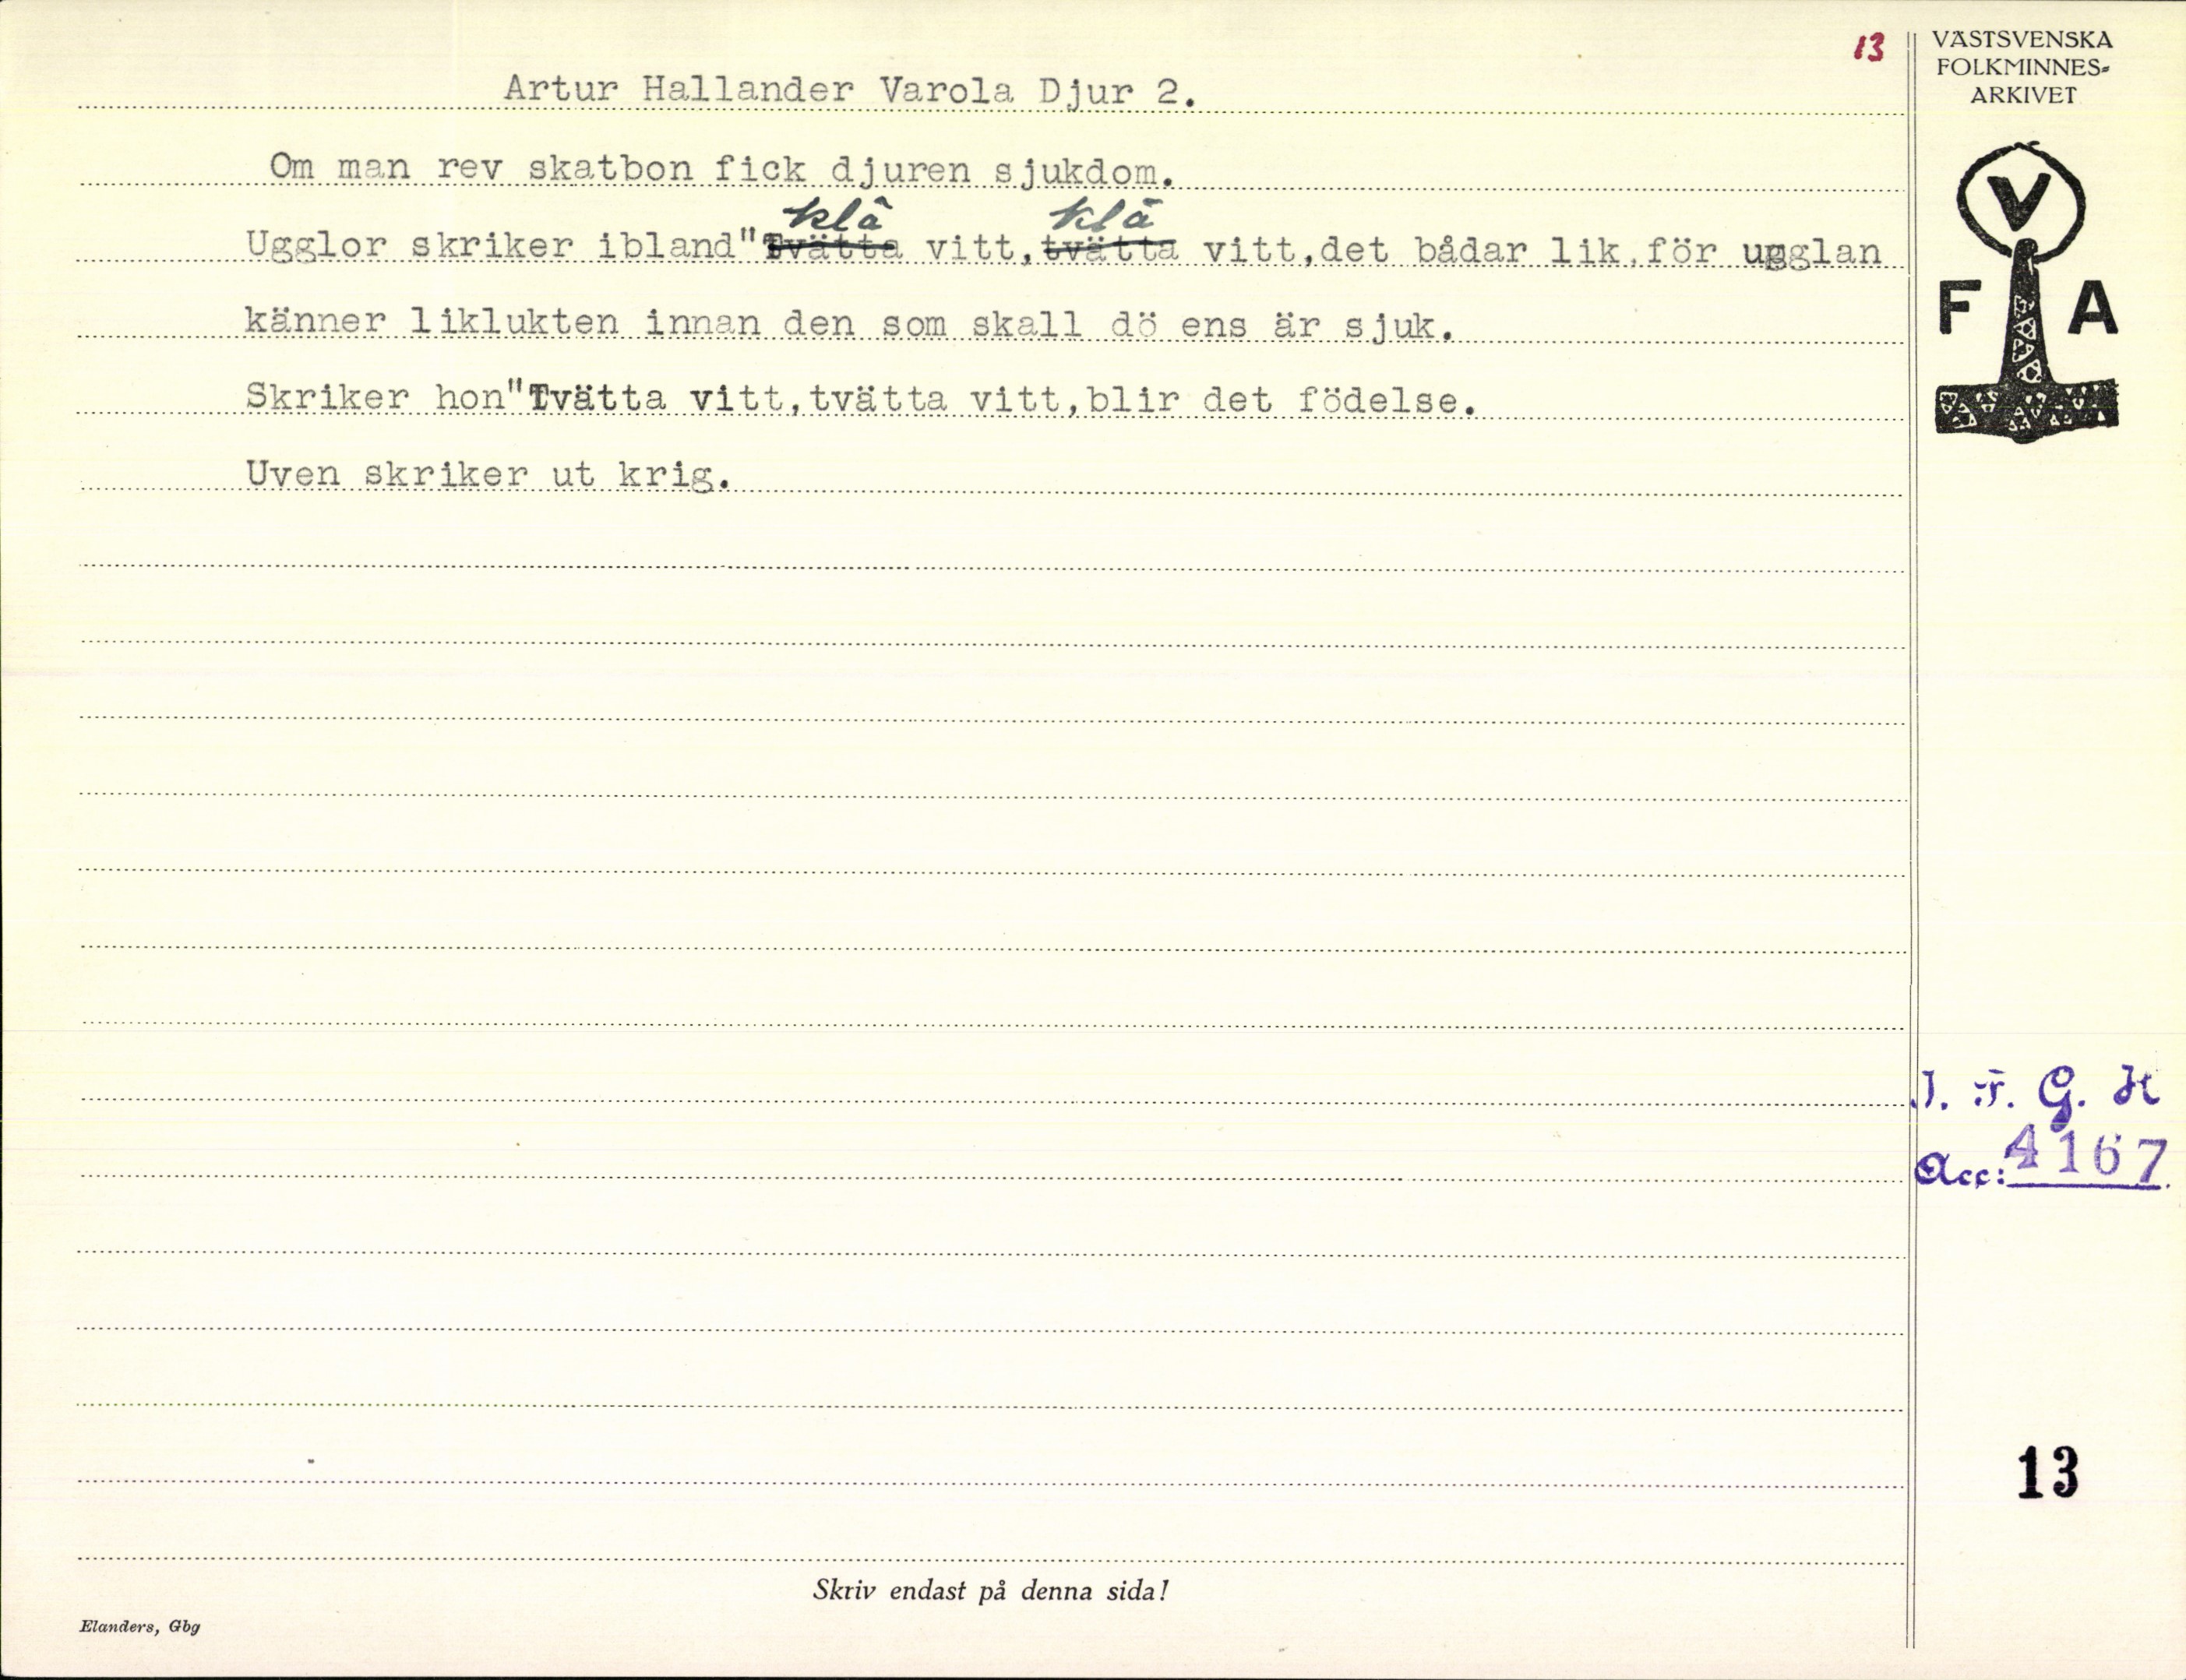 13
VÄSTSVENSKA
FOLKMINNES-
ARKIVET
Artur Hallander Varola Djur 2.
Om man rev skatbon fick djuren sjukdom.
klä klä
Ugglor skriker ibland"Tvätta vitt,tvätta vitt,det bådar lik,för ugglan
känner liklukten innan den som skall dö ens är sjuk.
Skriker hon"Tvätta vitt,tvätta vitt,blir det födelse.
Uven skriker ut krig.
V
F A
I. F. G. H
Acc: 4167.
13
Skriv endast på denna sida!
Elanders, Gbg